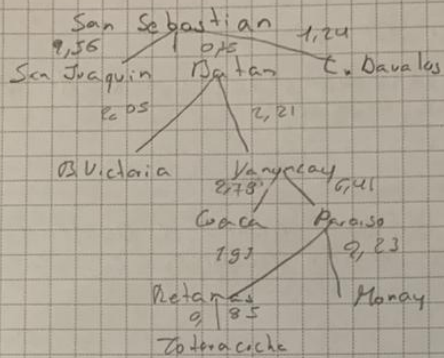 San Sebastian
2,56 0,75 1,24
San Juaquin Batan C. Davalos
2,05 2,21
B. Victoria Yanuncay
2,78 6,41
Coaca Paraiso
1,93 2,23
Retamas Monay
0,85
Totoracocha